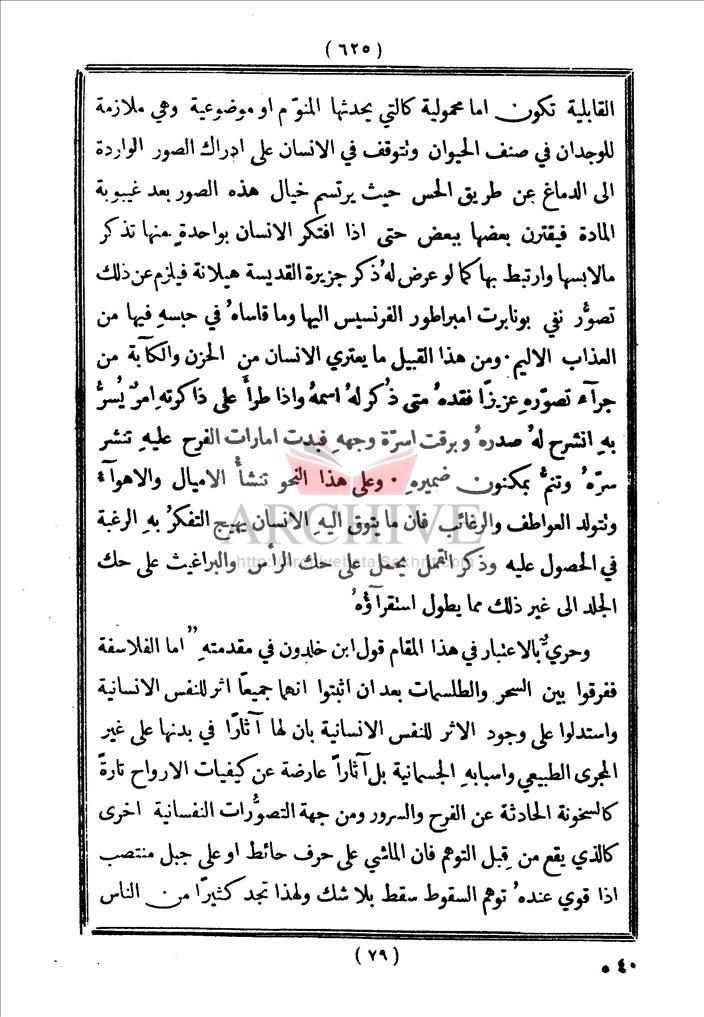 ( ٦٢٥ )
القابلية تكون اما محمولية كالتي يحدثها المنوّم او موضوعية وهي ملازمة
للوجدان في صنف الحيوان وتتوقف في الانسان على ادراك الصور الواردة
الى الدماغ عن طريق الحس حيث يرتسم خيال هذه الصور بعد غيبوبة
المادة فيقترن بعضها ببعض حتى اذا افتكر الانسان بواحدةٍ منها تذكر
مالابسها وارتبط بها كما لو عرض لهُ ذكر جزيرة القديسة هيلانة فيلزم عن ذلك
تصوُّر نفي بونابرت امبراطور الفرنسيس اليها وما قاساهُ في حبسهِ فيها من
العذاب الاليم ٠ ومن هذا القبيل ما يعتري الانسان من الحزن والكآبة من
جرآء تصوّرهِ عزيزًا فقدهُ متى ذُكر لهُ اسمهُ واذا طرأ على ذاكرتهِ امرٌ يُسرُّ
بهِ انشرح لهُ صدرهُ وبرقت اسرّة وجههِ فبدت امارات الفرح عليهِ تنشر
سرّهُ وتنمُّ بمكنون ضميرهِ ٠ وعلى هذا النحو تنشأُ الاميال والاهوآء
وتتولد العواطف والرغائب فان ما يتوق اليهِ الانسان يهيج التفكرُ بهِ الرغبة
في الحصول عليه وذكر القمل يحمل على حك الرأس والبراغيث على حك
الجلد الى غير ذلك مما يطول استقرآؤُهُ
وحريٌّ بالاعتبار في هذا المقام قول ابن خلدون في مقدمتهِ "اما الفلاسفة
ففرقوا بين السحر والطلسمات بعد ان اثبتوا انهما جميعًا اثر للنفس الانسانية
واستدلوا على وجود الاثر للنفس الانسانية بان لها آثارًا في بدنها على غير
المجرى الطبيعي واسبابهِ الجسمانية بل آثاراً عارضة عن كيفيات الارواح تارةً
كالسخونة الحادثة عن الفرح والسرور ومن جهة التصوُّرات النفسانية اخرى
كالذي يقع من قِبل التوهم فان الماشي على حرف حائط او على جبل منتصب
اذا قوي عندهُ توهم السقوط سقط بلا شك ولهذا تجد كثيرًا من الناس
( ٧٩ )
٤٠ •
ARCHIVE